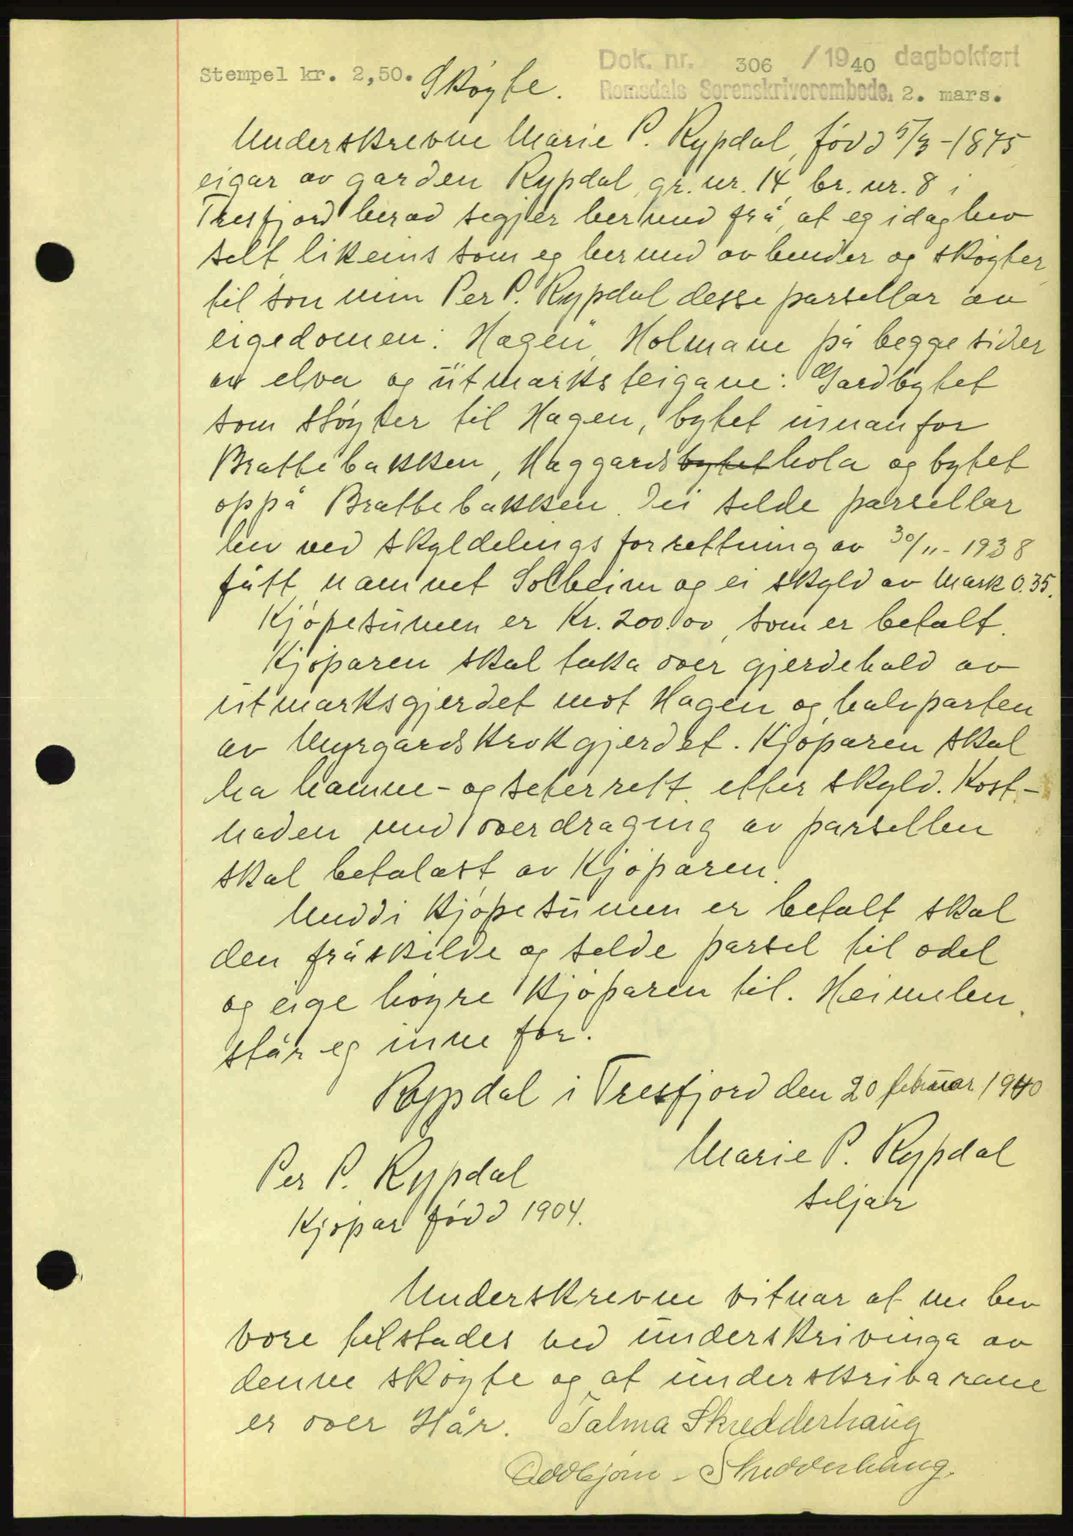 Stempel kr. 2,50. Skøyte.
Dok. nr. 306 / 1940 dagbokført
Romsdals Sorenskriverembede, 2. mars.
Underskrevne Marie P. Rypdal, född 5/3-1875
eigar av garden Rypdal, gr. nr. 14, br. nr. 8 i
Tresfjord herad segjer hermed frå, at eg idag hev
selt likeins som eg hermed avhender og skøyter
til son min Per P. Rypdal desse parsellar av
eigedomen: "Hagen", Holmane på begge sider
av elva og ŭtmarksteigane: Gardbytet
som støyter til Hagen, bytet innanfor
Brattebakken, Haggardsbytethola og bytet
oppå Brattebakken. Dei selde parsellar
hev ved skyldelings forrettning av 30/11-1938
fått namnet Solheim og ei skyld av Mark 0.35.
Kjøpesŭmen er Kr. 200.00, som er betalt.
Kjøparen skal taka over gjerdehald av
ŭtmarksgjerdet mot Hagen og halvparten
av Myrgardskrokgjerdet. Kjøparen skal
ha hamne- og seterrett etter skyld. Kost-
naden med overdraging av parsellen
skal betalast av Kjøparen.
Meddi Kjøpesŭmen er betalt skal
den fråskilde og selde parsel til odel
og eige høyre Kjøparen til. Heimelen
står eg inne for.
Rypdal i Tresfjord den 20 februar 1940
Marie P. Rypdal
seljar
Per P. Rypdal
Kjøpar född 1904.
Underskrevne vitnar at me hev
vore tilstades ved ŭnderskrivinga av
denne skøyte og at ŭnderskrivarane
er over 21 år. Talma Skredderhaŭg
Oddbjørn Skredderhaug.